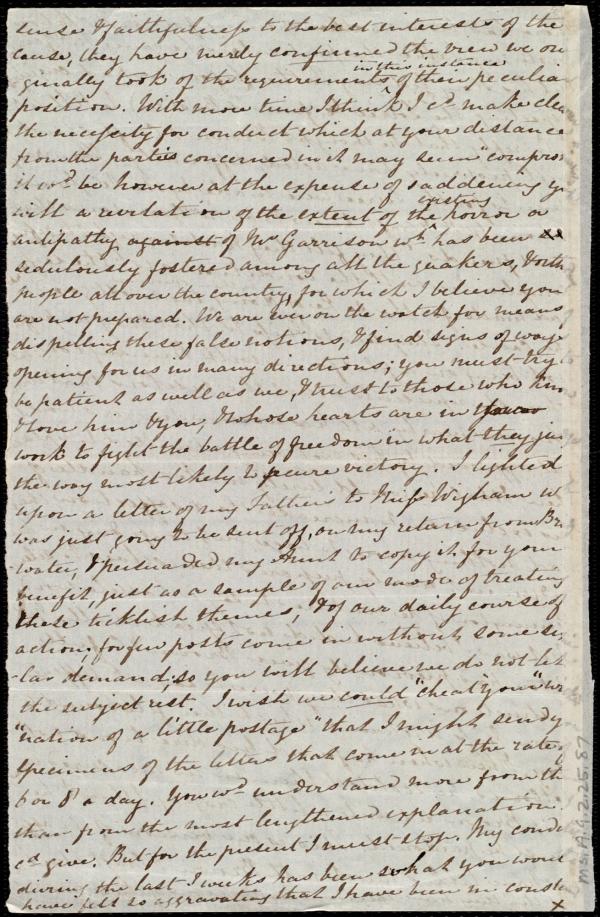 sense & faithfulness to the best interests of the
cause, they have merely confirmed the view we ori
ginally took of the requirements ^in this instance of their peculiar
position. With more time I think I cd. make clear
the necessity for conduct which at your distance
from the parties concerned in it may seem "compro
it wd. be however at the expense of saddening yo
with a revelation of the extent of the ^existing horror or
antipathy against of Mr Garrison wh. has been
sedulously fostered among all the quakers, & oth
people all over the country, for which I believe you
are not prepared. We are ever on the watch for means
dispelling these false notions, & find signs of way
opening for us in many directions; you must try
be patient as well as we, & trust to those who kno
& love him & you, & whose hearts are in
work to fight the battle of freedom in what they ju
the way most likely to secure victory. I lighted
upon a letter of my Father's to Miss Wigham w
was just going to be sent off, on my return from Br
water, & persuaded my Aunt to copy it for your
benefit, just as a sample of our mode of treating
these ticklish themes, & of our daily course of
action; for few posts come in without some si
lar demand; so you will believe we do not let
the subject rest. I wish we could "cheat your "w
"nation of a little postage" that I might send y
specimens of the letters that come in at the rate of
6 or 8 a day. You wd. understand more from th
than from the most lengthened explanation
cd. give. But for the present I must stop. My condu
during the last 2 weeks has been what you woul
have felt so aggravating that I have been in consta
x
Ms.A.9.2.25.87